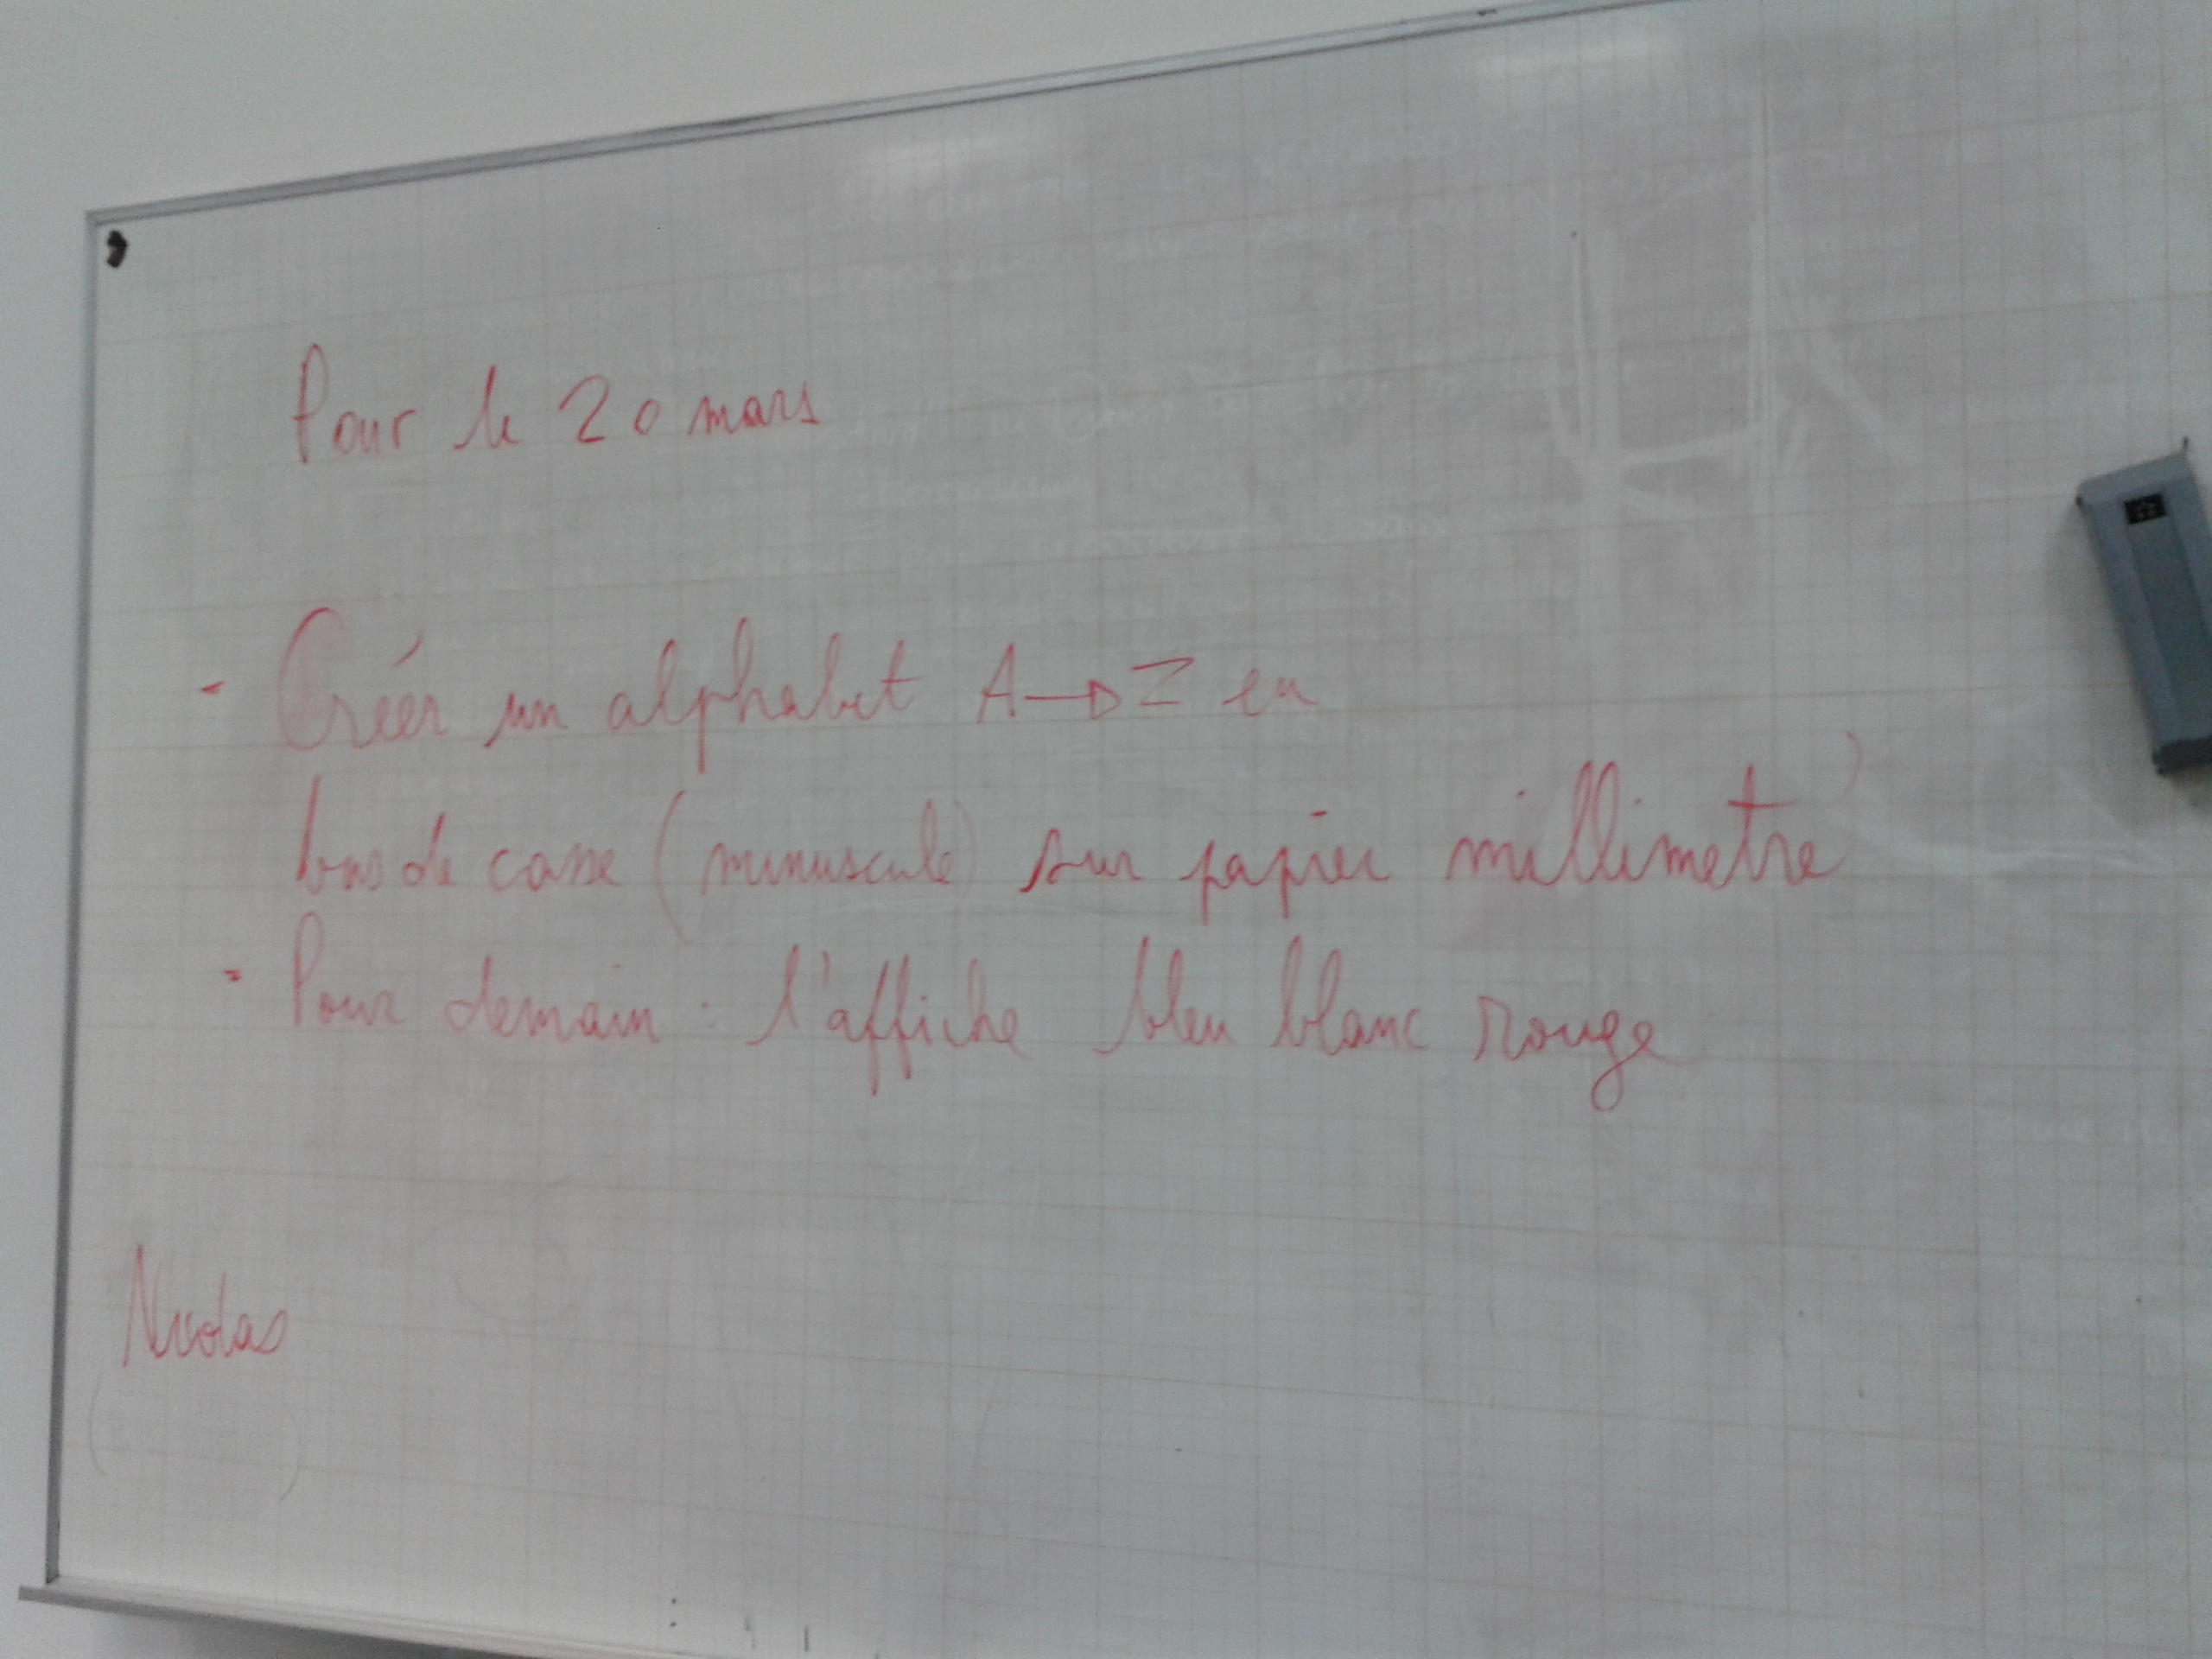 Pour le 20 mars
- Créer un alphabet A → Z en
bas de casse (minuscule) sur papier millimetré
- Pour demain : l'affiche bleu blanc rouge
Nicolas